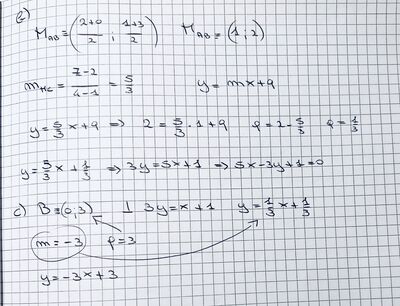 b)
M_AB ≡ (2+0/2 , 1+3/2) M_AB = (1 ; 2)
m_MC = 7-2/4-1 = 5/3 y = mx+q
y = 5/3 x + q ⇒ 2 = 5/3 · 1 + q q = 2 - 5/3 q = 1/3
y = 5/3 x + 1/3 ⇒ 3y = 5x+1 ⇒ 5x-3y+1=0
c) B≡(0;3) ⊥ 3y = x+1 y = 1/3 x + 1/3
m = -3 q = 3
y = -3x+3